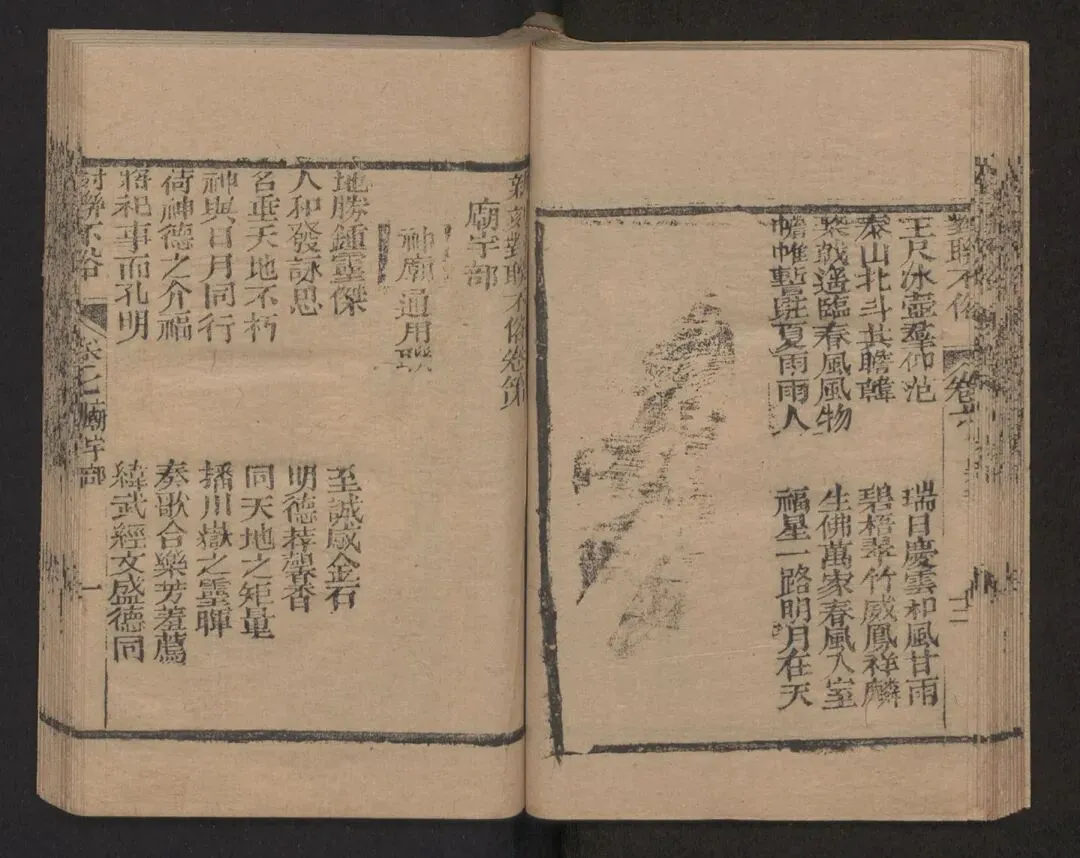 對聯不俗 卷六 十二
玉尺冰壺羣仰范
瑞日慶雲和風甘雨
泰山北斗共瞻韓
碧梧翠竹威鳳祥麟
棨戟遙臨春風風物
生佛萬家春風入室
幨帷暫駐夏雨雨人
福星一路明月在天
新刻對聯不俗卷第
廟宇部
神廟通用聯
地勝鍾靈傑
至誠感金石
人和發詠思
明德荐馨香
名垂天地不朽
同天地之矩量
神與日月同行
播川嶽之靈暉
荷神德之介福
奏歌合樂芳羞薦
將祀事而孔明
緯武經文盛德同
對聯不俗 卷七 廟宇部 一